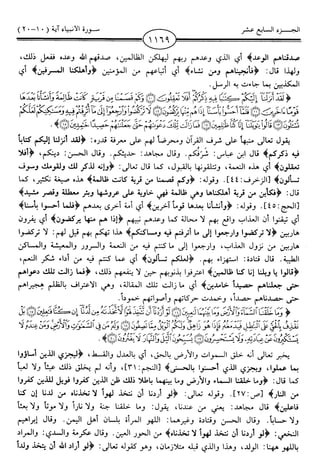 الجـزء السابع عشر
١١٦٩
سورة الأنبياء آية (١٠-٢٠)
صدقناهم الوعد﴾ أي الذي وعدهم ربهم ليهلكن الظالمين، صدقهم الله وعده ففعل ذلك،
ولهذا قال: ﴿فأنجيناهم ومن نشاء﴾ أي أتباعهم من المؤمنين ﴿وأهلكنا المسرفين﴾ أي
المكذبين بما جاءت به الرسل.
﴿لقد أنزلنا إليكم كتابا فيه ذكركم أفلا تعقلون ۞ وكم قصمنا من قرية كانت ظالمة وأنشأنا بعدها
قوما آخرين ۞ فلما أحسوا بأسنا إذا هم منها يركضون ۞ لا تركضوا وارجعوا إلى ما أترفتم فيه ومساكنكم لعلكم
تسألون ۞ قالوا يا ويلنا إنا كنا ظالمين ۞ فما زالت تلك دعواهم حتى جعلناهم حصيدا خامدين ۞﴾.
يقول تعالى منبهاً على شرف القرآن ومحرضاً لهم على معرفة قدره: ﴿لقد أنزلنا إليكم كتاباً
فيه ذكركم﴾ قال ابن عباس: شرَفُكم. وقال مجاهد: حديثكم. وقال الحسن: دينكم، ﴿أفلا
تعقلون﴾ أي هذه النعمة، وتتلقونها بالقبول، كما قال تعالى: ﴿وإنه لذكر لك ولقومك وسوف
تسألون﴾ [الزخرف: ٤٤]. وقوله: ﴿وكم قصمنا من قرية كانت ظالمة﴾ هذه صيغة تكثير، كما
قال: ﴿فكأين من قرية أهلكناها وهي ظالمة فهي خاوية على عروشها وبئر معطلة وقصر مشيد﴾
[الحج: ٤٥]. وقوله: ﴿وأنشأنا بعدها قوماً آخرين﴾ أي أمة أخرى بعدهم ﴿فلما أحسوا بأسنا﴾
أي تيقنوا أن العذاب واقع بهم لا محالة كما وعدهم نبيهم ﴿إذا هم منها يركضون﴾ أي يفرون
هاربين ﴿لا تركضوا وارجعوا إلى ما أترفتم فيه ومساكنكم﴾ هذا تهكم بهم قيل لهم: لا تركضوا
هاربين من نزول العذاب، وارجعوا إلى ما كنتم فيه من النعمة والسرور والمعيشة والمساكن
الطيبة. قال قتادة: استهزاء بهم. ﴿لعلكم تسألون﴾ أي عما كنتم فيه من أداء شكر النعم،
﴿قالوا يا ويلنا إنا كنا ظالمين﴾ اعترفوا بذنوبهم حين لا ينفعهم ذلك، ﴿فما زالت تلك دعواهم
حتى جعلناهم حصيداً خامدين﴾ أي ما زالت تلك المقالة، وهي الاعتراف بالظلم هجيراهم
حتى حصدناهم حصداً، وخمدت حركاتهم وأصواتهم خموداً.
﴿وما خلقنا السماء والأرض وما بينهما لاعبين ۞ لو أردنا أن نتخذ لهوا لاتخذناه من لدنا إن كنا فاعلين ۞ بل
نقذف بالحق على الباطل فيدمغه فإذا هو زاهق ولكم الويل مما تصفون ۞ وله من في السماوات والأرض ومن عنده لا
يستكبرون عن عبادته ولا يستحسرون ۞ يسبحون الليل والنهار لا يفترون ۞﴾.
يخبر تعالى أنه خلق السموات والأرض بالحق، أي بالعدل والقسط، ﴿ليجزي الذين أساؤوا
بما عملوا، ويجزي الذي أحسنوا بالحسنى﴾ [النجم: ٣١]، وأنه لم يخلق ذلك عبثاً ولا لعباً
كما قال: ﴿وما خلقنا السماء والأرض وما بينهما باطلا ذلك ظن الذين كفروا فويل للذين كفروا
من النار﴾ [ص: ٢٧]. وقوله تعالى: ﴿لو أردنا أن نتخذ لهواً لا تخذناه من لدنا إن كنا
فاعلين﴾ قال مجاهد: يعني من عندنا، يقول: وما خلقنا جنة ولا ناراً ولا موتاً ولا بعثاً
ولا حساباً. وقال الحسن وقتادة وغيرهما: اللهو المرأة بلسان أهل اليمن. وقال إبراهيم
النخعي: ﴿لو أردنا أن نتخذ لهواً لا تخذناه﴾ من الحور العين. وقال عكرمة والسدي: والمراد
باللهو ههنا: الولد، وهذا والذي قبله متلازمان، وهو كقوله تعالى: ﴿لو أراد الله أن يتخذ ولداً